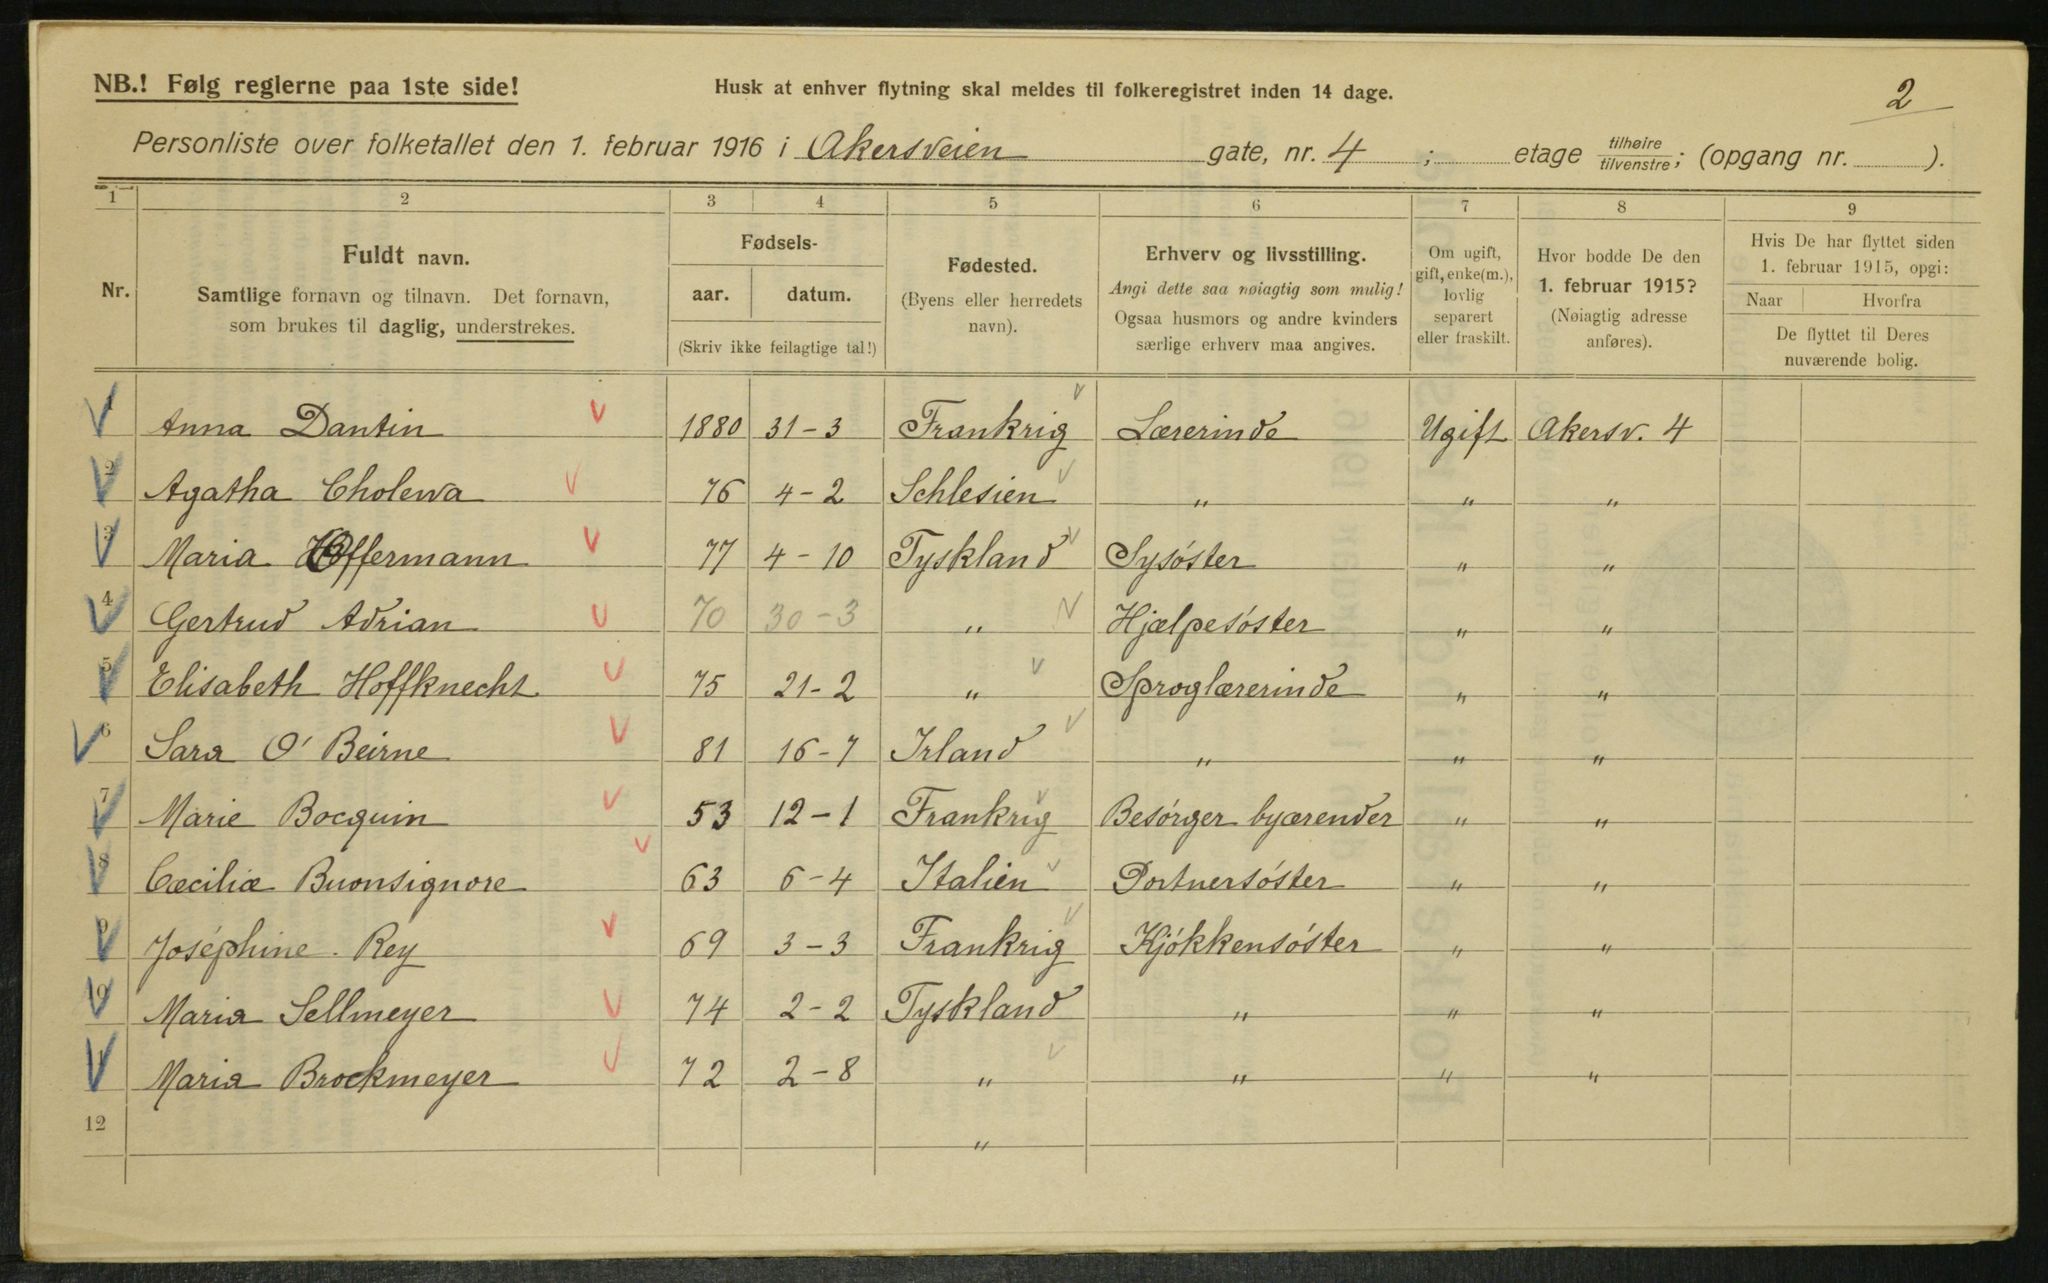 NB.! Følg reglerne paa 1ste side!
Husk at enhver flytning skal meldes til folkeregistret inden 14 dage.
2
Personliste over folketallet den 1. februar 1916 i Akersveien gate, nr. 4 ; etage tilhøire tilvenstre; (opgang nr. ).
1 2 3 4 5 6 7 8 9
Nr.
Fuldt navn.
Samtlige fornavn og tilnavn. Det fornavn,
som brukes til daglig, understrekes.
Fødsels-
aar. datum.
(Skriv ikke feilagtige tal!)
Fødested.
(Byens eller herredets
navn).
Erhverv og livsstilling.
Angi dette saa nøiagtig som mulig!
Ogsaa husmors og andre kvinders
særlige erhverv maa angives.
Om ugift,
gift, enke(m.),
lovlig
separert
eller fraskilt.
Hvor bodde De den
1. februar 1915?
(Nøiagtig adresse
anføres).
Hvis De har flyttet siden
1. februar 1915, opgi:
Naar Hvorfra
De flyttet til Deres
nuværende bolig.
1 Anna Dantin 1880 31-3 Frankrig Lærerinde Ugift Akersv. 4
2 Agatha Cholewa 76 4-2 Schlesien " " "
3 Maria Hoffermann 77 4-10 Tyskland Sysöster " "
4 Gertrud Adrian 70 30-3 " Hjælpesöster " "
5 Elisabeth Hoffknecht 75 21-2 " Sproglærerinde " "
6 Sara O'Beirne 81 16-7 Irland " " "
7 Marie Bocquin 53 12-1 Frankrig Besörger byærender " "
8 Cæciliæ Buonsignore 63 6-4 Italien Portnersöster " "
9 Joséphine Rey 69 3-3 Frankrig Kjökkensöster " "
10 Maria Sellmeyer 74 2-2 Tyskland " " "
11 Maria Brockmeyer 72 2-8 " " " "
12 "